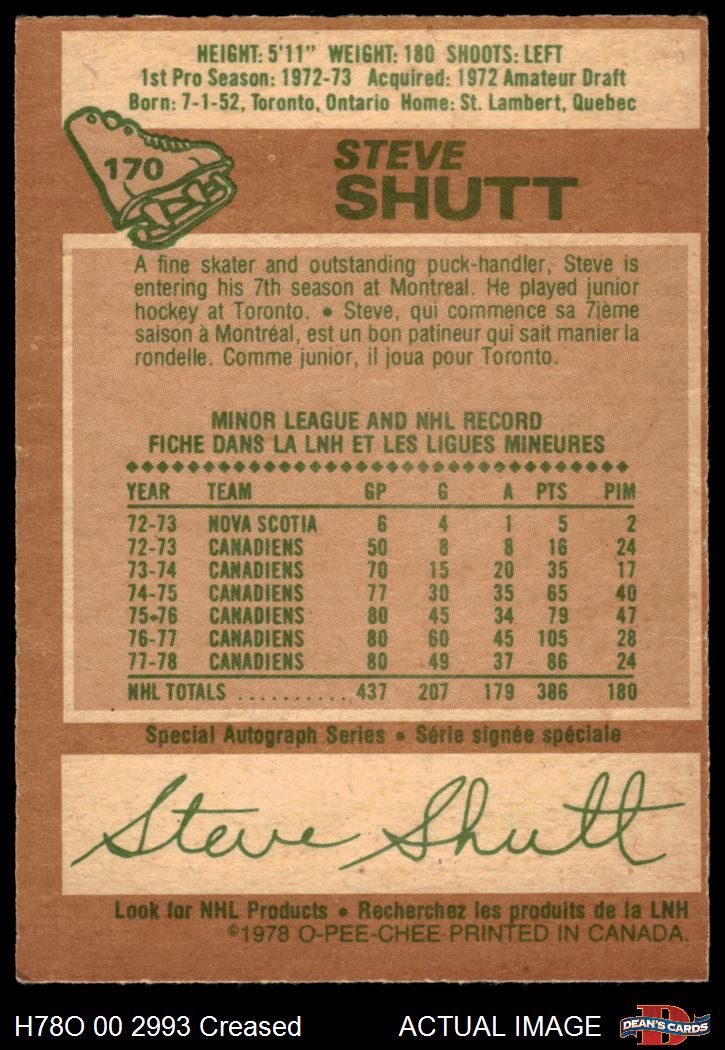 HEIGHT: 5'11" WEIGHT: 180 SHOOTS: LEFT
1st Pro Season: 1972-73 Acquired: 1972 Amateur Draft
Born: 7-1-52, Toronto, Ontario Home: St. Lambert, Quebec
170
STEVE
SHUTT
A fine skater and outstanding puck-handler, Steve is
entering his 7th season at Montreal. He played junior
hockey at Toronto. • Steve, qui commence sa 7ième
saison à Montréal, est un bon patineur qui sait manier la
rondelle. Comme junior, il joua pour Toronto.
MINOR LEAGUE AND NHL RECORD
FICHE DANS LA LNH ET LES LIGUES MINEURES
YEAR TEAM GP G A PTS PIM
72-73 NOVA SCOTIA 6 4 1 5 2
72-73 CANADIENS 50 8 8 16 24
73-74 CANADIENS 70 15 20 35 17
74-75 CANADIENS 77 30 35 65 40
75-76 CANADIENS 80 45 34 79 47
76-77 CANADIENS 80 60 45 105 28
77-78 CANADIENS 80 49 37 86 24
NHL TOTALS .......... 437 207 179 386 180
Special Autograph Series • Série signée spéciale
Steve Shutt
Look for NHL Products • Recherchez les produits de la LNH
©1978 O-PEE-CHEE PRINTED IN CANADA.
H78O 00 2993 Creased ACTUAL IMAGE
D
DEAN'S CARDS